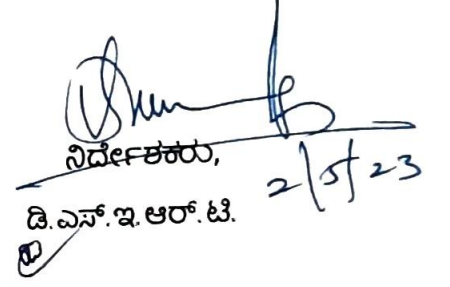 ನಿರ್ದೇಶಕರು,
2/5/23
ಡಿ.ಎಸ್.ಇ.ಆರ್.ಟಿ.